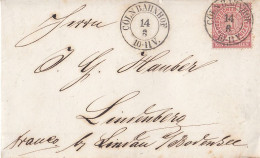 CÖLN BAHNHOF
14
8
10-11 V.
CÖLN BAHNHOF
14
8
10-11 V.
Herrn
J. G. Hauber
Lindenberg
franco by Lindau i/Bodensee